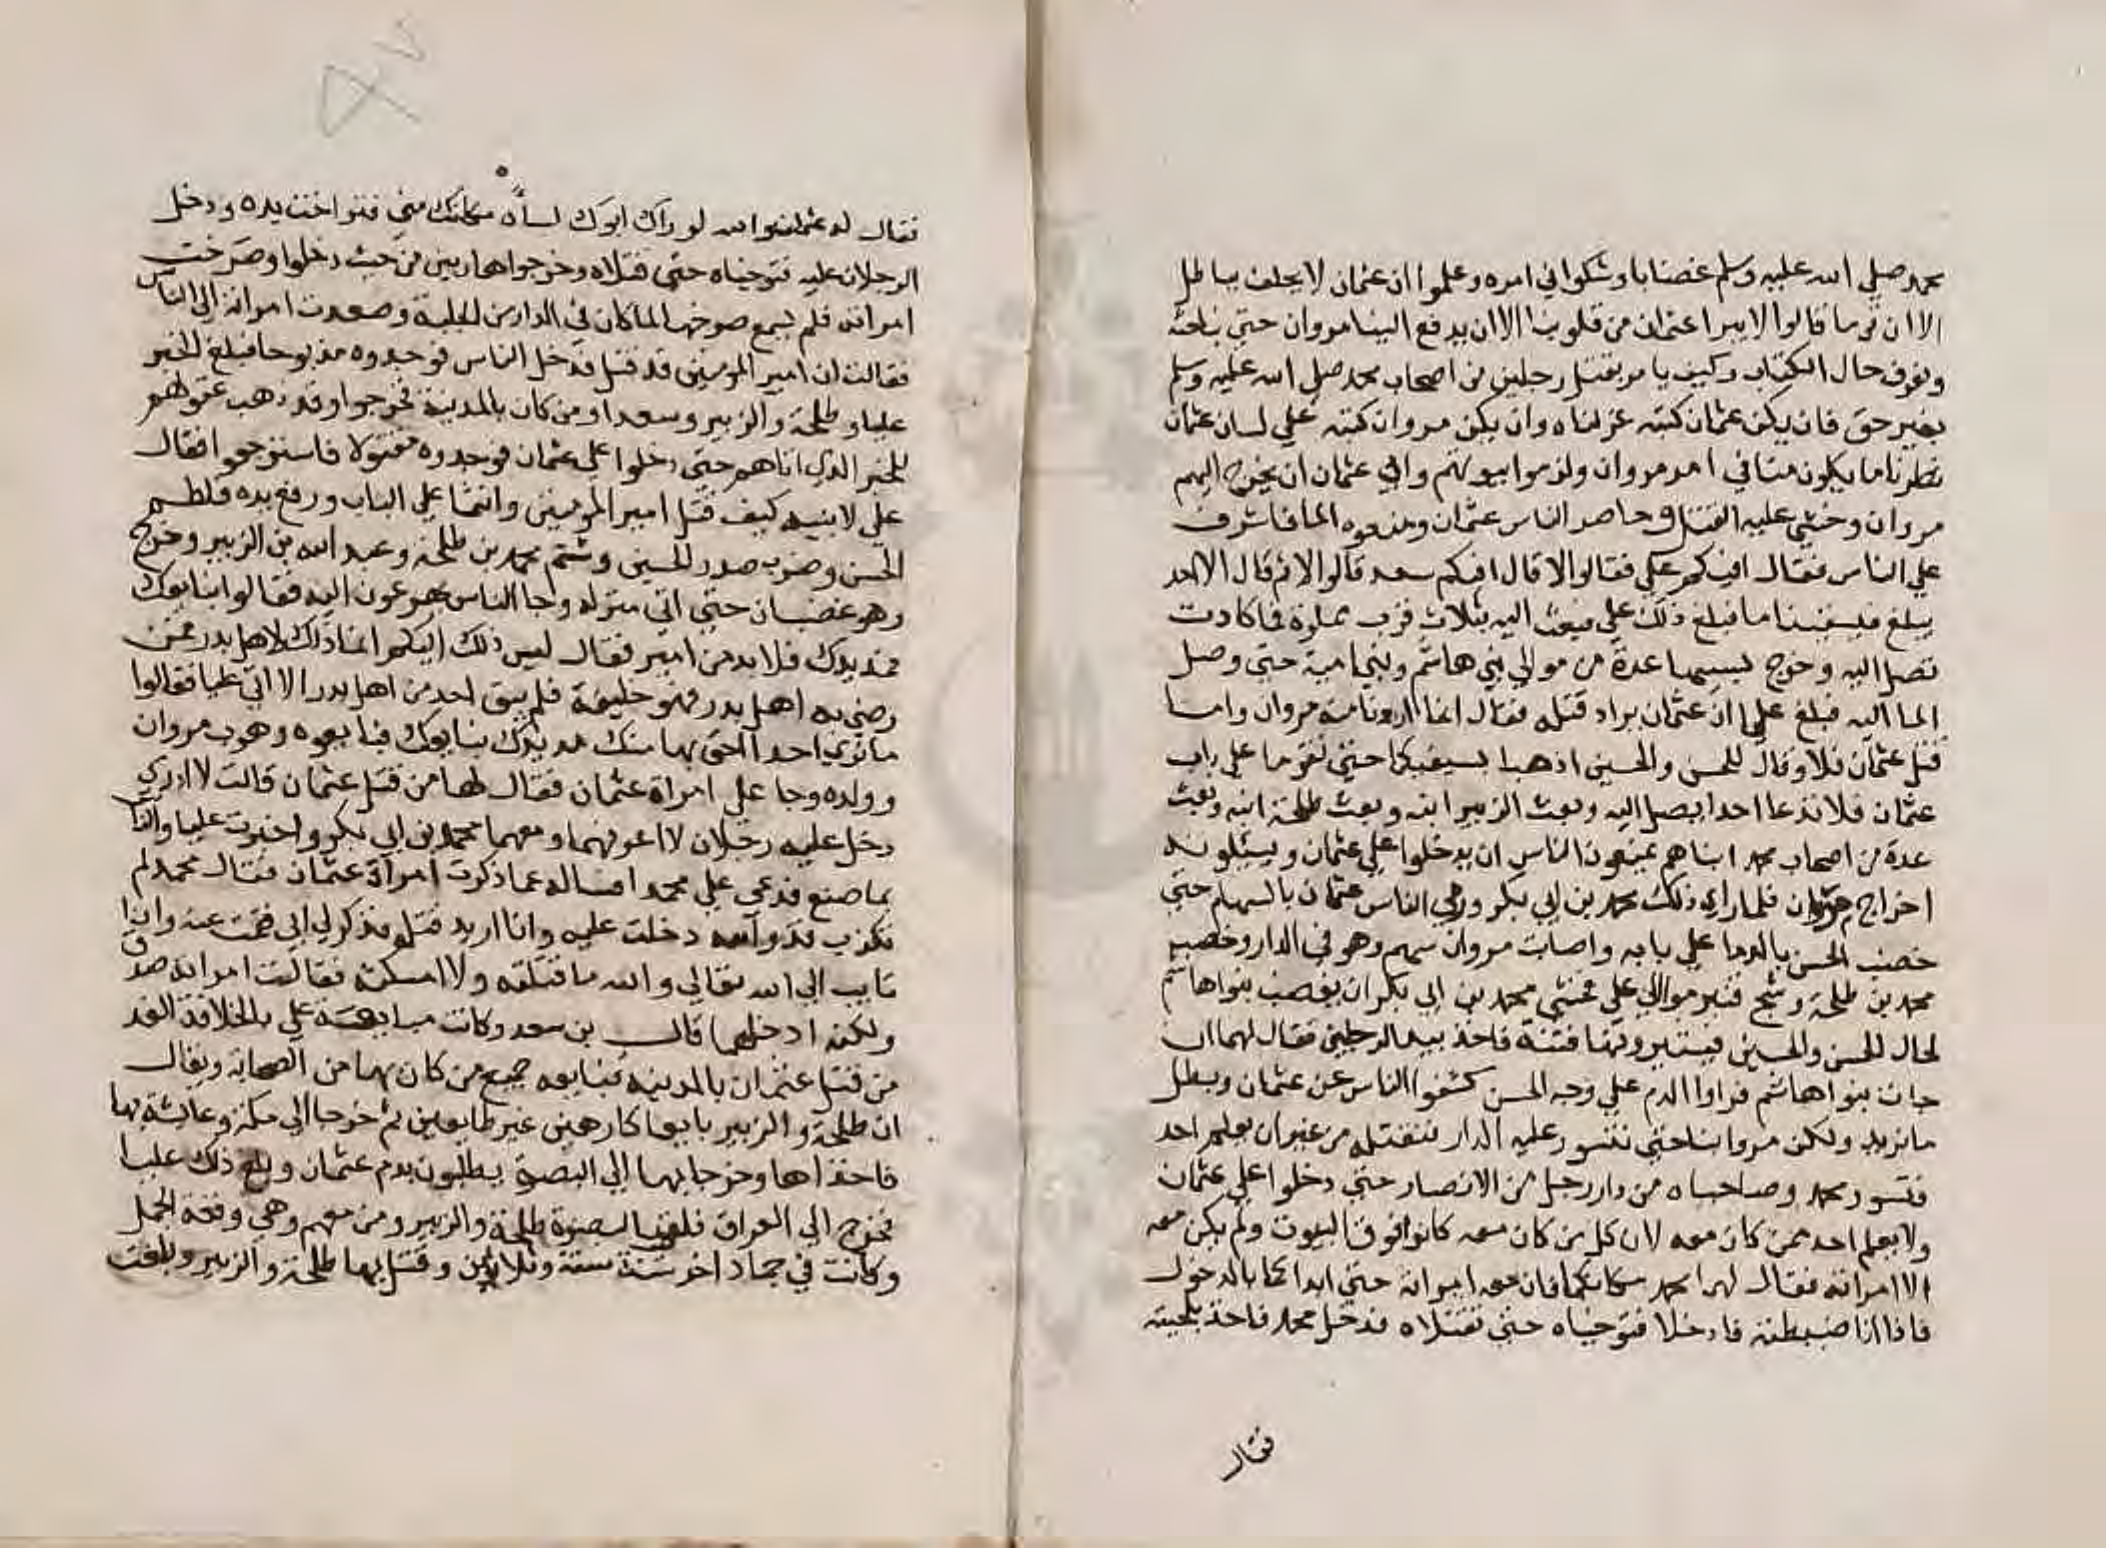 محمد صلي الله عليه وسلم غضابا وشكوا في امره وعلموا ان عثمان لا يحلف بباطل
الا ان قوما قالوا لا يبرا عثمان من قلوبنا الا ان يدفع الينا مروان حتي نباحثه
ونعرف حال الكتاب وكيف يامر بقتل رجلين من اصحاب محمد صلي الله عليه وسلم
بغير حق فان يكن عثمان كتبه عزلناه وان يكن مروان كتبه علي لسان عثمان
نظرنا ما يكون منا في امر مروان ولزموا بيوتهم وابي عثمان ان يخرج اليهم
مروان وخشي عليه القتل وحاصر الناس عثمان ومنعوه الما فاشرف
علي الناس فقال افيكم علي فقالوا لا قال افيكم سعد قالوا لا ثم قال الا احد
يبلغ فيسقينا ما فبلغ ذلك علي فبعث اليه بثلاث قرب مملوة فما كادت
تصل اليه وخرج بسببها عدة من موالي بني هاشم وبني امية حتي وصل
الما اليه فبلغ علي ان عثمان يراد قتله فقال انما اردنا منه مروان واما
قتل عثمان فلا وقال للحسن والحسين اذهبا بسيفيكما حتي تقوما علي باب
عثمان فلا تدعا احدا يصل اليه وبعث الزبير ابنه وبعث طلحة ابنه وبعث
عدة من اصحاب محمد ابناهم يمنعون الناس ان يدخلوا علي عثمان ويسئلونه
اخراج مروان فلما راي ذلك محمد بن ابي بكر ورمي الناس عثمان بالسهام حتي
خضب الحسن بالدما علي بابه واصاب مروان سهم وهو في الدار وخضب
محمد بن طلحة وشج قنبر موالي علي فخشي محمد بن ابي بكر ان يغضب بنوا هاشم
لحال الحسن والحسين فيثيرونها فتنة فاخذ بيد الرجلين فقال لهما ان
جات بنوا هاشم فراوا الدم علي وجه الحسن كشفوا الناس عن عثمان وبطل
ما نريد ولكن مروا بنا حتي نتسور عليه الدار فنقتله من غير ان يعلم احد
فتسور محمد وصاحباه من دار رجل من الانصار حتي دخلوا علي عثمان
ولا يعلم احد ممن كان معه لان كل من كان معه كانوا فوق البيوت ولم يكن معه
الا امراته فقال لهما محمد مكانكما فان معه امراته حتي ابداكما بالدخول
فاذا انا ضبطته فادخلا فتوجياه حتي تقتلاه فدخل محمد فاخذ بلحيته
فقال
فقال له عثمان والله لو راك ابوك لساه مكانك مني فتراخت يده ودخل
الرجلان عليه فتوجياه حتي قتلاه وخرجوا هاربين من حيث دخلوا وصرخت
امراته فلم يسمع صرخها لما كان في الدار من الجلبة وصعدت امراته الي الناس
فقالت ان امير المومنين قد قتل فدخل الناس فوجدوه مذبوحا فبلغ الخبر
عليا وطلحة والزبير وسعدا ومن كان بالمدينة فخرجوا وقد ذهب عقولهم
للخبر الذي اتاهم حتي دخلوا علي عثمان فوجدوه مقتولا فاسترجعوا فقال
علي لابنيه كيف قتل امير المومنين وانتما علي الباب ورفع يده فلطم
الحسن وضرب صدر الحسين وشتم محمد بن طلحة وعبد الله بن الزبير وخرج
وهو غضبان حتي اتي منزله وجا الناس يهرعون اليه فقالوا نبايعك
فمد يدك فلا بد من امير فقال ليس ذلك اليكم انما ذلك لاهل بدر فمن
رضي به اهل بدر فهو خليفة فلم يبق احد من اهل بدر الا اتي عليا فقالوا
ما نري احدا احق بها منك مد يدك نبايعك فبايعوه وهرب مروان
وولده وجا علي امراة عثمان فقال لها من قتل عثمان قالت لا ادري
دخل عليه رجلان لا اعرفهما ومعهما محمد بن ابي بكر واخبرت عليا والناس
بما صنع فدعي علي محمدا فساله عما ذكرت امراة عثمان فقال محمد لم
تكذب قد والله دخلت عليه وانا اريد قتله فذكر لي ابي فقمت عنه وانا
تايب الي الله تعالي والله ما قتلته ولا امسكته فقالت امراته صدق
ولكنه ادخلهما قال بن سعد وكانت مبايعة علي بالخلافة الغد
من قتل عثمان بالمدينه فبايعه جميع من كان بها من الصحابة ويقال
ان طلحة والزبير بايعا كارهين غير طايعين ثم خرجا الي مكة وعايشة بها
فاخذاها وخرجا بها الي البصرة يطلبون بدم عثمان وبلغ ذلك عليا
فخرج الي العراق فلقي بالبصرة طلحة والزبير ومن معهم وهي وقعة الجمل
وكانت في جماد اخر سنة ستة وثلاثين وقتل بها طلحة والزبير وبلغت